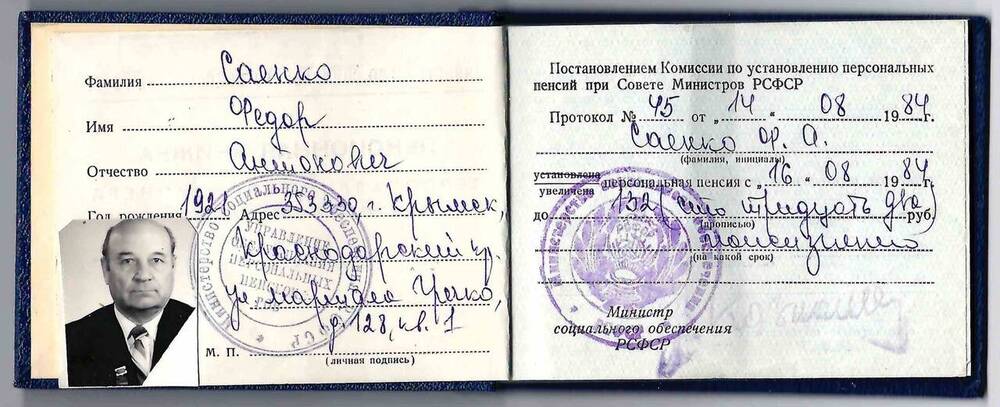 Фамилия Саенко
Имя Федор
Отчество Антонович
Год рождения 1921 Адрес 353330, г. Крымск,
Краснодарский кр.
ул маршала Гречко,
д. 128, кв. 1
М. П.
(личная подпись)
МИНИСТЕРСТВО СОЦИАЛЬНОГО ОБЕСПЕЧЕНИЯ РСФСР
УПРАВЛЕНИЕ
ПЕРСОНАЛЬНЫХ
ПЕНСИЙ
Постановлением Комиссии по установлению персональных
пенсий при Совете Министров РСФСР
Протокол № 45 от „ 14 “ 08 1984 г.
Саенко Ф. А.
(фамилия, инициалы)
установлена
увеличена персональная пенсия с „ 16 “ 08 1984 г.
до 132 (сто тридцать два) руб.
(прописью)
пожизненно
(на какой срок)
Министр
социального обеспечения
РСФСР